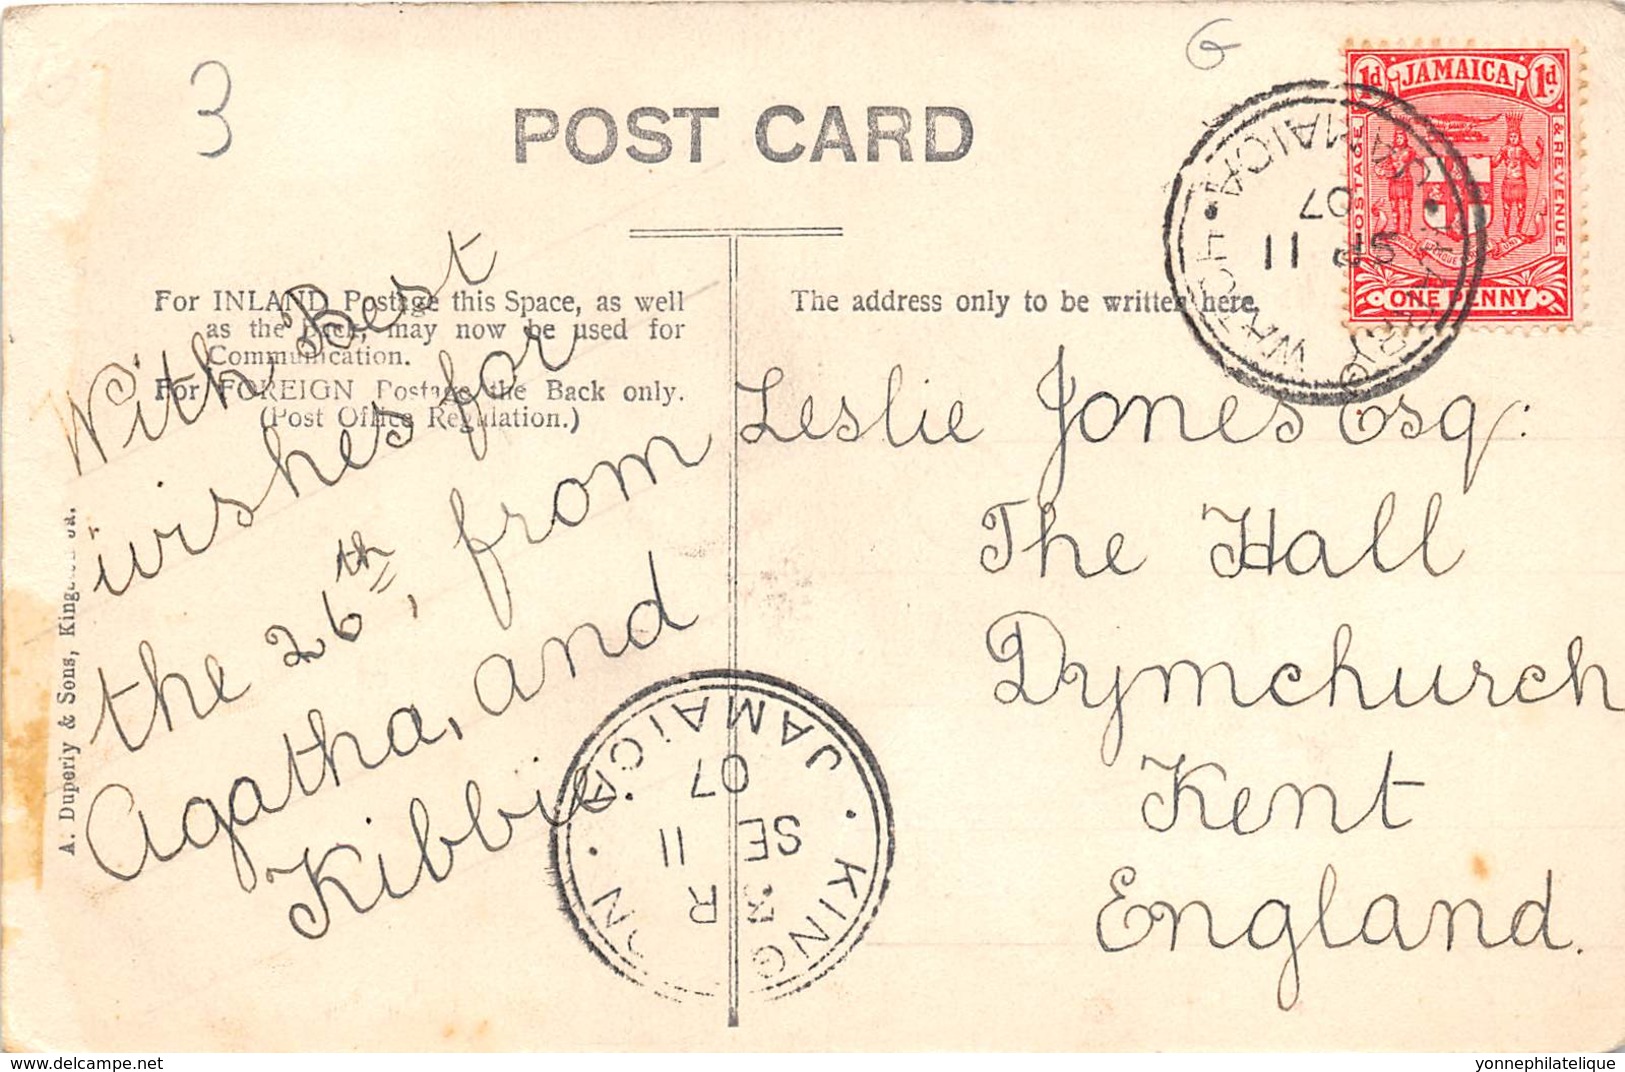 3
G
POST CARD
1d JAMAICA 1d
POSTAGE
& REVENUE
ONE PENNY
JAMAICA
WATCH
SE 11
07
For INLAND Postage this Space, as well
as the Back, may now be used for
Communication.
For FOREIGN Postage the Back only.
(Post Office Regulation.)
The address only to be written here.
With Best
wishes for
the 26th, from
Agatha, and
Kibbie.
Leslie Jones Esq:
The Hall
Dymchurch
Kent
England.
JAMAICA
07
SE 11
R
A. Duperly & Sons, Kingston Ja.
www.delcampe.net
yonnephilatelique